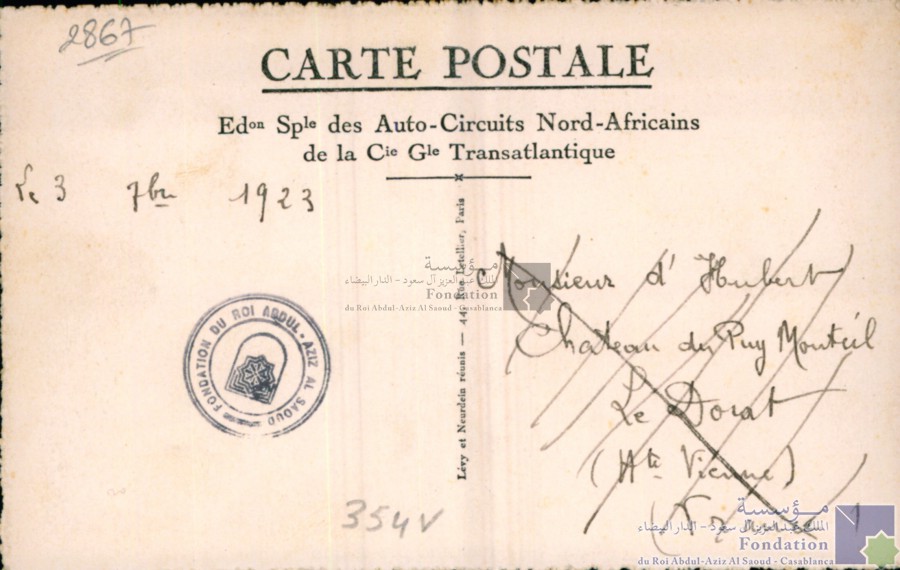 2867
CARTE POSTALE
Edon Sple des Auto-Circuits Nord-Africains
de la Cie Gle Transatlantique
Le 3 7bre 1923
Lévy et Neurdein réunis — 44, Rue Letellier, Paris
Monsieur d'Hubert
Chateau du Puy Monteil
Le Dorat
(Hte Vienne)
(France)
FONDATION DU ROI ABDUL-AZIZ AL SAOUD
354V
مؤسسة
الملك عبد العزيز آل سعود - الدار البيضاء
Fondation
du Roi Abdul-Aziz Al Saoud - Casablanca
مؤسسة
الملك عبد العزيز آل سعود - الدار البيضاء
Fondation
du Roi Abdul-Aziz Al Saoud - Casablanca